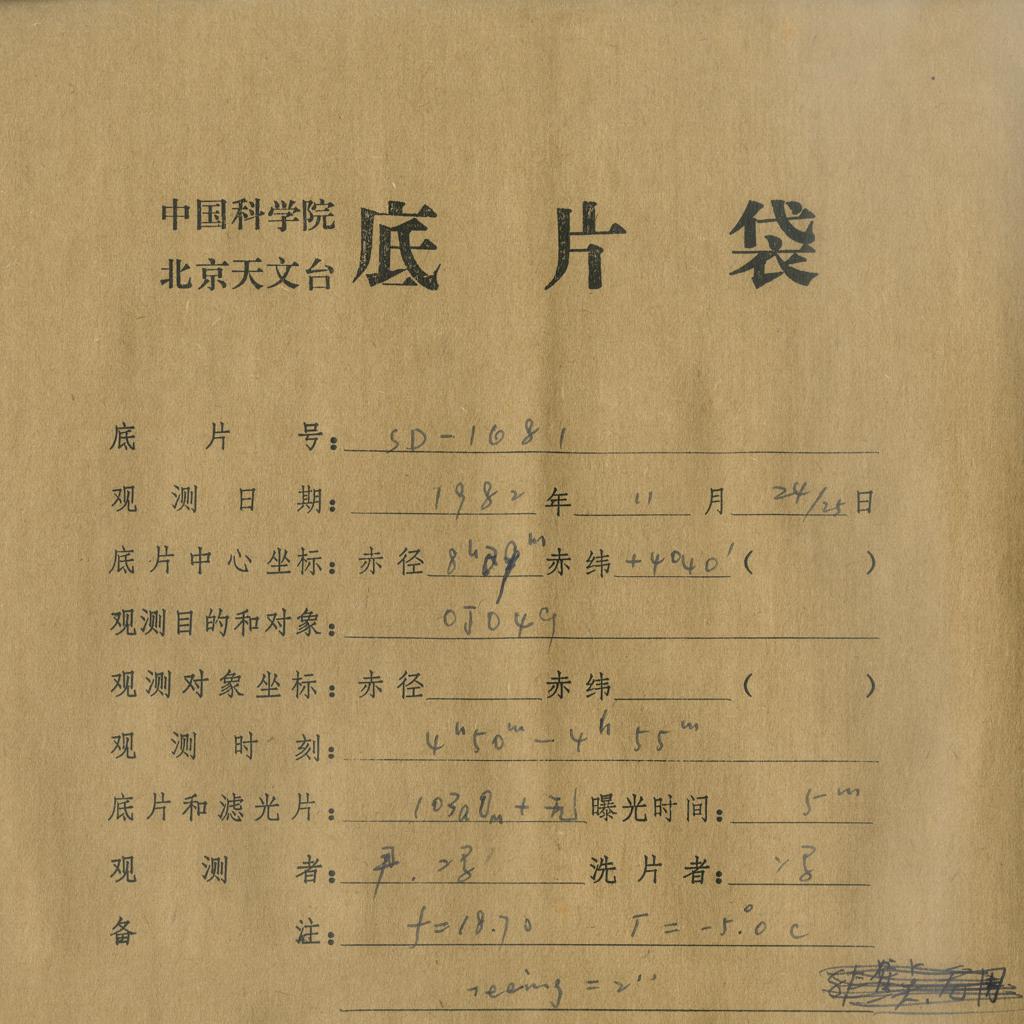 中国科学院
北京天文台
底片袋
底片号：SD-1681
观测日期：1982年 11月 24/25日
底片中心坐标：赤径 8ʰ29ᵐ 赤纬 +4°40′ （ ）
观测目的和对象：OJ049
观测对象坐标：赤径 赤纬 （ ）
观测时刻：4ʰ50ᵐ - 4ʰ55ᵐ
底片和滤光片：103aOₘ + 无 曝光时间：5ᵐ
观测者： 洗片者：
备注：f=18.70 T=-5.°0 C
seeing = 2"